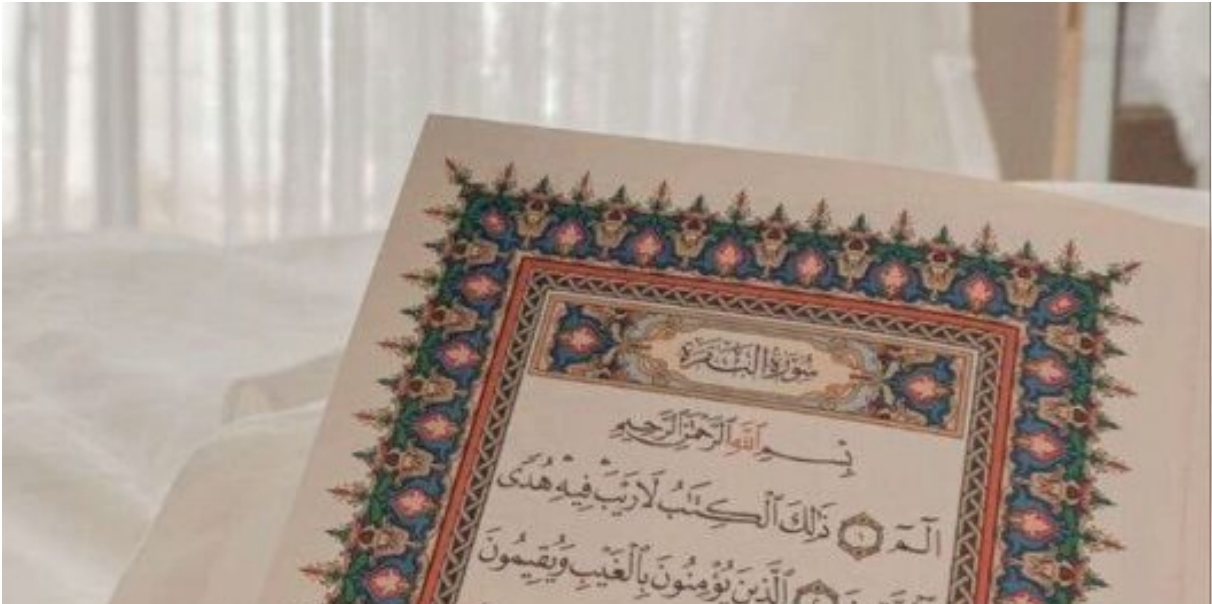 سُورَةُ الْبَقَرَةِ
بِسْمِ ٱللَّهِ ٱلرَّحْمَٰنِ ٱلرَّحِيمِ
الٓمٓ ١ ذَٰلِكَ ٱلْكِتَٰبُ لَا رَيْبَ ۛ فِيهِ ۛ هُدًى
ٱلَّذِينَ يُؤْمِنُونَ بِٱلْغَيْبِ وَيُقِيمُونَ